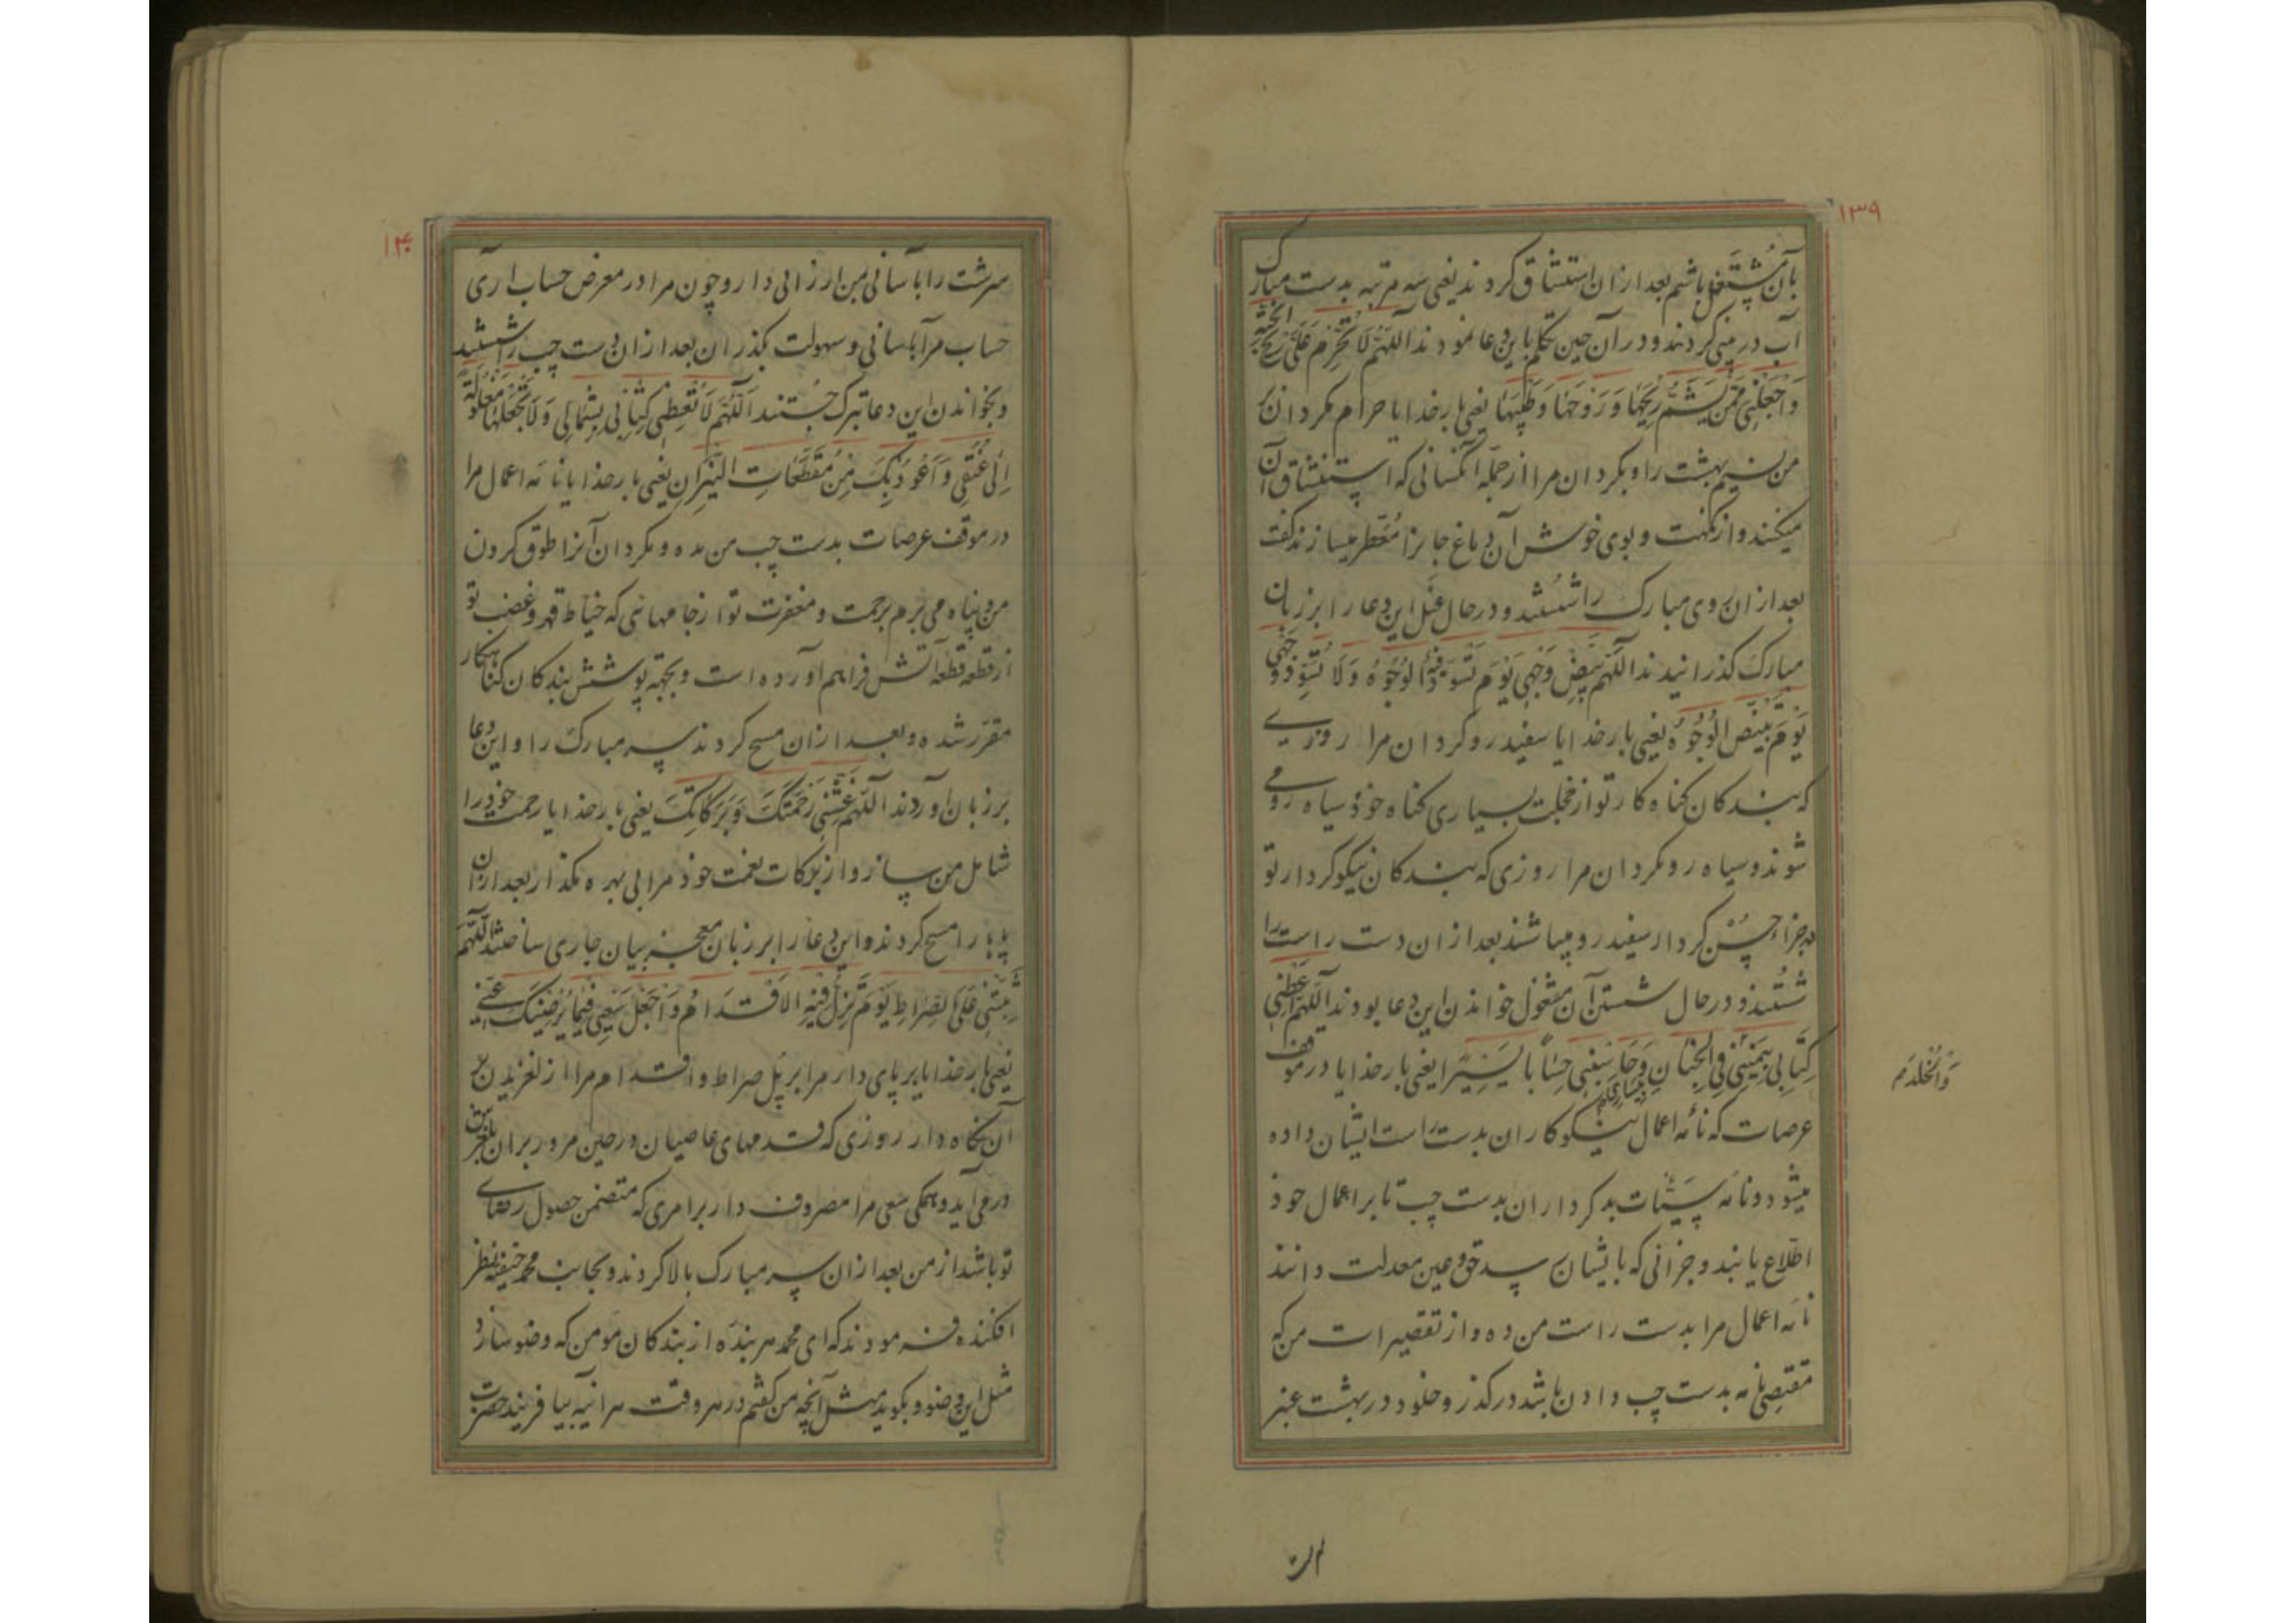 ١٣٩
بآن مشتغل باشم بعد از ان استنشاق کردند یعنی سه مرتبه بدست مبارک
آب در بینی کردند و در آن حین تکلم باین دعا نمودند اَللّهُمَّ لا تُحَرِّم عَلَیَّ ریحَ الجَنَّةِ
وَاجْعَلْنی مِمَّن یَشَمُّ ریحَها وَرَوحَها وَطیبَها یعنی بارخدایا حرام مکردان
من نسیم بهشت را و بکردان مرا از جمله آنکسانی که استنشاق آن
میکنند و از نکهت و بوی خوش آن دماغ جانرا مُعطر میسازند
بعد از ان روی مبارک را شستند و در حال غسل این دعا را بر زبان
مبارک کذرانیدند اللّهُمَّ بَیِّض وَجْهی یَوْمَ تَسْوَدُّ فیهِ الوُجُوهُ وَلا تُسَوِّد وَجْهی
یَوْمَ تَبْیَضُّ الوُجُوهُ یعنی بارخدایا سفید رو کردان مرا روزی
که بندکان کناه کار تو از خجلت بسیاری کناه خوذ سیاه روی
شوند و سیاه رو مکردان مرا روزی که بندکان نیکو کردار تو
بجزاء حُسْن کردار سفید رو میباشند بعد از ان دست راست را
شُستند و در حال شستن آن مشغول خواندن این دعا بودند اللّهُمَّ اَعْطِنی
کِتابی بِیَمینی فِی الجِنانِ بیَساری وَحاسِبْنی حِساباً یَسیرًا یعنی بارخدایا در موقف
وَالْخُلْدَ
عرصات که نامه اعمال نیکوکاران بدست راست ایشان داده
میشود و نامه سَیِّئات بدکرداران بدست چپ تا بر اعمال خوذ
اطلاع یابند و جزائی که بایشان رسد حق و عین معدلت دانند
نامه اعمال مرا بدست راست من ده و از تقصیرات من که
مقتضی نامه بدست چپ دادن باشد درکذر و خلود در بهشت عنبر
١۴٠
سرشت را بآسانی بمن ارزانی دار و چون مرا در معرض حساب آری
حساب مرا بآسانی و سهولت بکذران بعد از ان دست چپ را شستند
و بخواندن این دعا تبرک جُستند اَللّهُمَّ لا تُعْطِنی کِتابی بِشِمالی وَلا تَجْعَلْها مَغْلُولَةً
اِلی عُنُقی وَاَعُوذُ بِکَ مِن مُقَطَّعاتِ النّیران یعنی بارخدایا نامه اعمال مرا
در موقف عرصات بدست چپ من مده و مکردان آنرا طوق کردن
من و پناه می برم برحمت و مغفرت تو از جامهائی که خیاط قهر و غضب تو
از قطعه قطعه آتش فراهم آورده است و بجهة پوشش بندکان کناهکار
مقرر شده و بعد از ان مسح کردند سر مبارک را و این دعا
بر زبان آوردند اللّهُمَّ غَشِّنی رَحْمَتَکَ وَبَرَکاتِکَ یعنی بارخدایا رحمت خوذ را
شامل من ساز و از برکات نعمت خوذ مرا بی بهره مکذار بعد از ان
پایها را مسح کردند و این دعا را بر زبان معجز بیان جاری ساختند اللّهُمَّ
ثَبِّتْنی عَلَی الصِّراطِ یَوْمَ تَزِلُّ فیهِ الاَقْدامُ وَاجْعَلْ سَعْیی فیما یُرْضیکَ عَنّی
یعنی بارخدایا بر پای دار مرا بر پل صراط و اقدام مرا از لغزیدن بر
آن نکاه دار روزی که قدمهای عاصیان در حین مرور بر ان بلغزش
در می آید و همکی سعی مرا مصروف دار بر امری که متضمن حصول رضای
تو باشد از من بعد از ان سر مبارک بالا کردند و بجانب محمد حنیفه نظر
افکنده فرمودند که ای محمد هر بنده از بندکان مومن که وضو سازد
مثل این وضو و بکوید مثل آنچه من کفتم در هر وقت هر آینه بیافریند حضرت